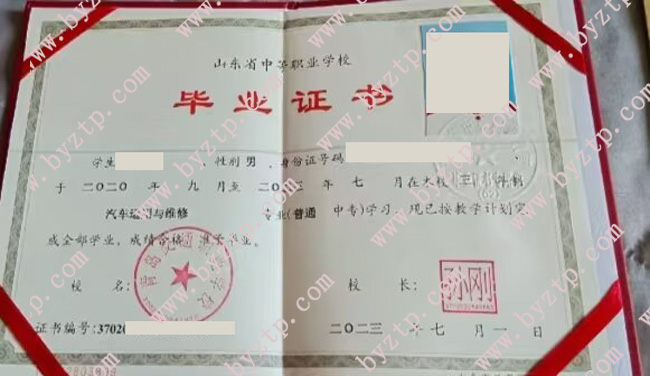 山东省中等职业学校
毕业证书
学生 ，性别 男 ，身份证号码
于 二〇二〇 年 九 月至 二〇二三 年 七 月在本校（三）年制
汽车运用与维修 专业（普通 中专）学习，现已按教学计划完
成全部学业，成绩合格，准予毕业。
校 名： 校 长： 孙刚
证书编号:37020
二〇二三 年 七 月 一 日
www.byztp.com